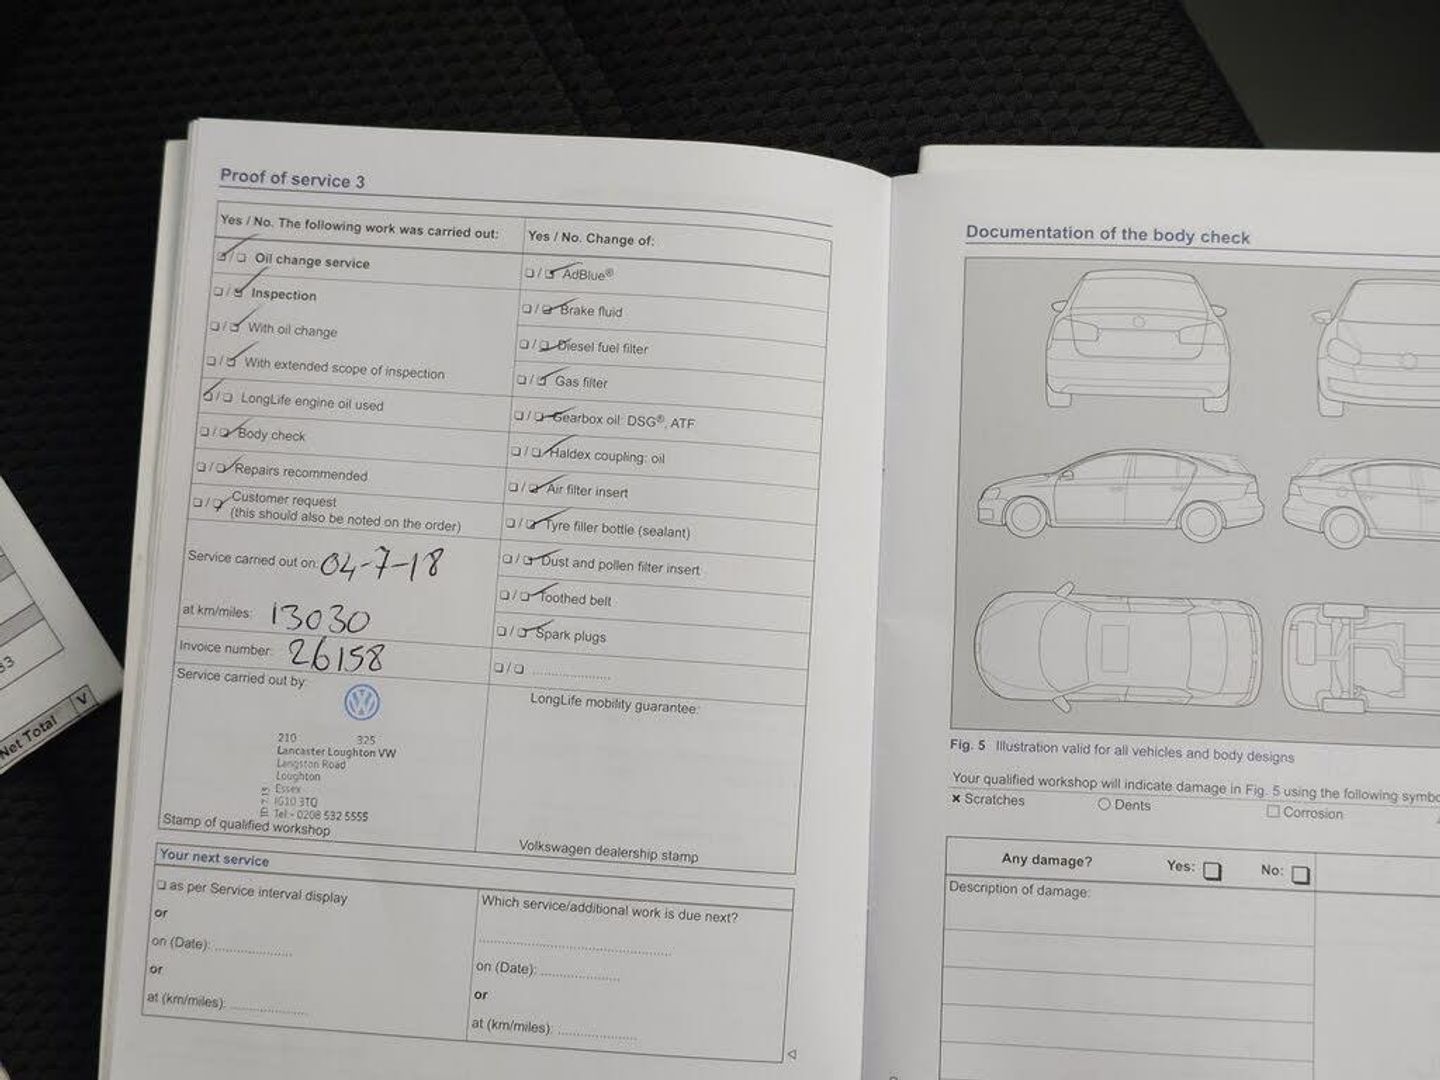 Proof of service 3
Yes / No. The following work was carried out:
Oil change service
Inspection
With oil change
With extended scope of inspection
LongLife engine oil used
Body check
Repairs recommended
Customer request
(this should also be noted on the order)
Service carried out on: 04-7-18
at km/miles: 13030
Invoice number: 26158
Service carried out by:
210 325
Lancaster Loughton VW
Langston Road
Loughton
Essex
IG10 3TQ
Tel:- 0208 532 5555
Stamp of qualified workshop
Yes / No. Change of:
AdBlue®
Brake fluid
Diesel fuel filter
Gas filter
Gearbox oil: DSG®, ATF
Haldex coupling: oil
Air filter insert
Tyre filler bottle (sealant)
Dust and pollen filter insert
Toothed belt
Spark plugs
LongLife mobility guarantee:
Volkswagen dealership stamp
Your next service
as per Service interval display
or
on (Date):
or
at (km/miles):
Which service/additional work is due next?
on (Date):
or
at (km/miles):
Documentation of the body check
Fig. 5 Illustration valid for all vehicles and body designs
Your qualified workshop will indicate damage in Fig. 5 using the following
Scratches
Dents
Corrosion
Any damage? Yes: No:
Description of damage:
Net Total
V